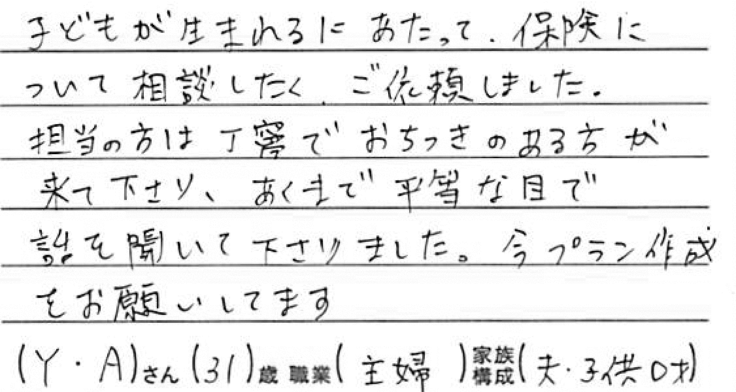 子どもが生まれるにあたって、保険に
ついて相談したく、ご依頼しました。
担当の方は丁寧でおちつきのある方が
来て下さり、あくまで平等な目で
話を聞いて下さりました。今プラン作成
をお願いしてます
(Y・A)さん(31)歳 職業(主婦)家族構成(夫・子供0才)